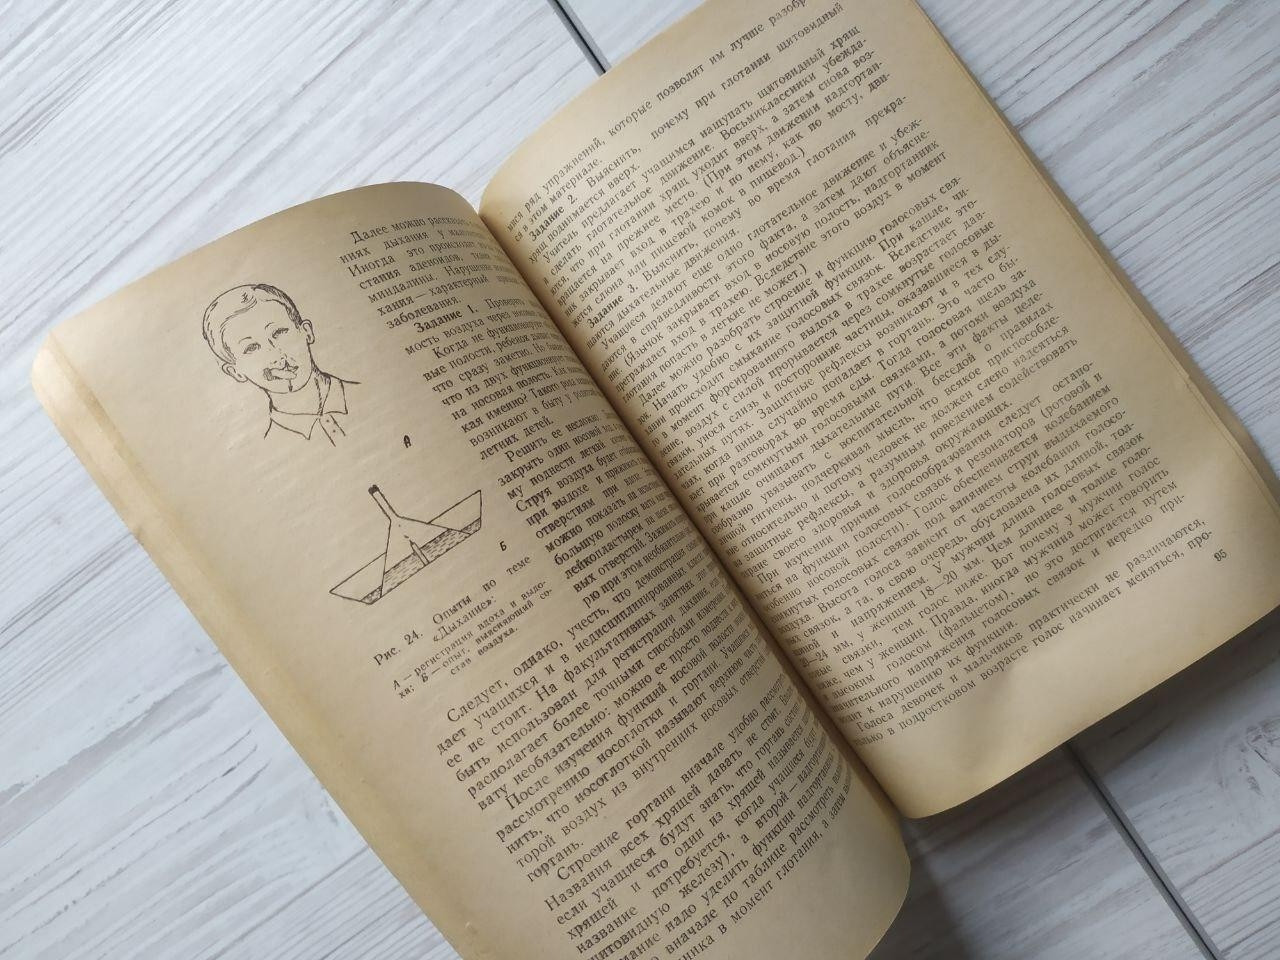 Далее можно рассказать
ниях дыхания у
Иногда это происходит
стания аденоидов,
миндалины. Нарушение
хания — характерный
заболевания.
Задание 1. Проверить
мость воздуха через носовые
Когда не функционируют
вые полости, ребенок дышит
что сразу заметно. Но бывает
что из двух функционирует
на носовая полость. Как
кая именно? Такого рода
возникают в быту у
летних детей.
Решить ее несложно.
закрыть один носовой ход
му поднести легкий
Струя воздуха будет
при выдохе и прижимать
отверстиям при вдохе.
можно показать на
большую полоску ваты
лейкопластырем на
вых отверстий. Зажимать
рю при этом необязательно
А
Б
Рис. 24. Опыты по теме
«Дыхание»:
А — регистрация вдоха и выдо-
ха; Б — опыт, выясняющий со-
став воздуха.
Следует, однако, учесть, что демонстрация
дает учащихся и в недисциплинированных
ее не стоит. На факультативных занятиях
быть использован для регистрации дыхания,
располагает более точными способами измерения.
вату необязательно: можно ее просто поднести к
После изучения функций носовой полости
рассмотрению носоглотки и гортани. Учащимся
нить, что носоглоткой называют верхнюю
торой воздух из внутренних носовых отверстий
гортань.
Строение гортани вначале удобно рассмотреть
Названия всех хрящей давать не стоит.
если учащиеся будут знать, что гортань
хрящей и что один из хрящей называется
название потребуется, когда учащиеся
щитовидную железу), а второй — надгортанник
мание надо уделить функции надгортанника
но вначале по таблице рассмотреть
ника в момент глотания, а затем
мися ряд упражнений, которые позволят им лучше разобраться
ся в этом материале.
Задание 2. Выяснить, почему при глотании щитовидный
хрящ поднимается вверх.
Учитель предлагает учащимся нащупать щитовидный хрящ
сделать глотательное движение. Восьмиклассники убежда-
что при глотании хрящ уходит вверх, а затем снова воз-
вращается на прежнее место. (При этом движении надгортан-
ник закрывает вход в трахею и по нему, как по мосту, дви-
жется слюна или пищевой комок в пищевод.)
Задание 3. Выяснить, почему во время глотания прекра-
щаются дыхательные движения.
Учащиеся делают еще одно глотательное движение и убеж-
даются в справедливости этого факта, а затем дают объясне-
ние. (Язычок закрывает вход в носовую полость, надгортанник
преграждает вход в трахею. Вследствие этого воздух в момент
глотания попасть в легкие не может.)
Далее можно разобрать строение и функцию голосовых свя-
зок. Начать удобно с их защитной функции. При кашле, чи-
в момент форсированного выдоха в трахее возрастает дав-
ление, воздух с силой прорывается через сомкнутые голосовые
слизь и посторонние частицы, оказавшиеся в ды-
хательных путях. Защитные рефлексы возникают и в тех слу-
чаях, когда пища случайно попадает в гортань. Это часто бы-
вает при разговорах во время еды. Тогда голосовая щель за-
крывается сомкнутыми голосовыми связками, а потоки воздуха
очищают дыхательные пути. Все эти факты целе-
сообразно увязывать с воспитательной беседой о правилах
гигиены, подчеркивая мысль, что всякое приспособле-
ние относительно и потому человек не должен слепо надеяться
на защитные рефлексы, а разумным поведением содействовать
охране своего здоровья и здоровья окружающих.
При изучении причин голосообразования следует остано-
виться на функции голосовых связок и резонаторов (ротовой и
особенно носовой полости). Голос обеспечивается колебанием
сомкнутых голосовых связок под влиянием струи выдыхаемого
воздуха. Высота голоса зависит от частоты колебания голосо-
вых связок, а та, в свою очередь, обусловлена их длиной, тол-
щиной и напряжением. У мужчин длина голосовых связок
20—24 мм, у женщин 18—20 мм. Чем длиннее и толще голо-
совые связки, тем голос ниже. Вот почему у мужчин голос
ниже, чем у женщин. Правда, иногда мужчина может говорить
высоким голосом (фальцетом), но это достигается путем
значительного напряжения голосовых связок и нередко при-
водит к нарушению их функции.
Голоса девочек и мальчиков практически не различаются,
только в подростковом возрасте голос начинает меняться, про-
95